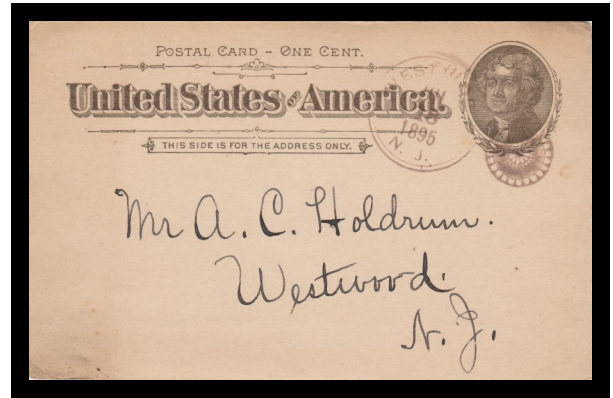 POSTAL CARD - ONE CENT.
United States of America.
THIS SIDE IS FOR THE ADDRESS ONLY.
18
1895
N. J.
Mr A. C. Holdrum.
Westwood.
N. J.